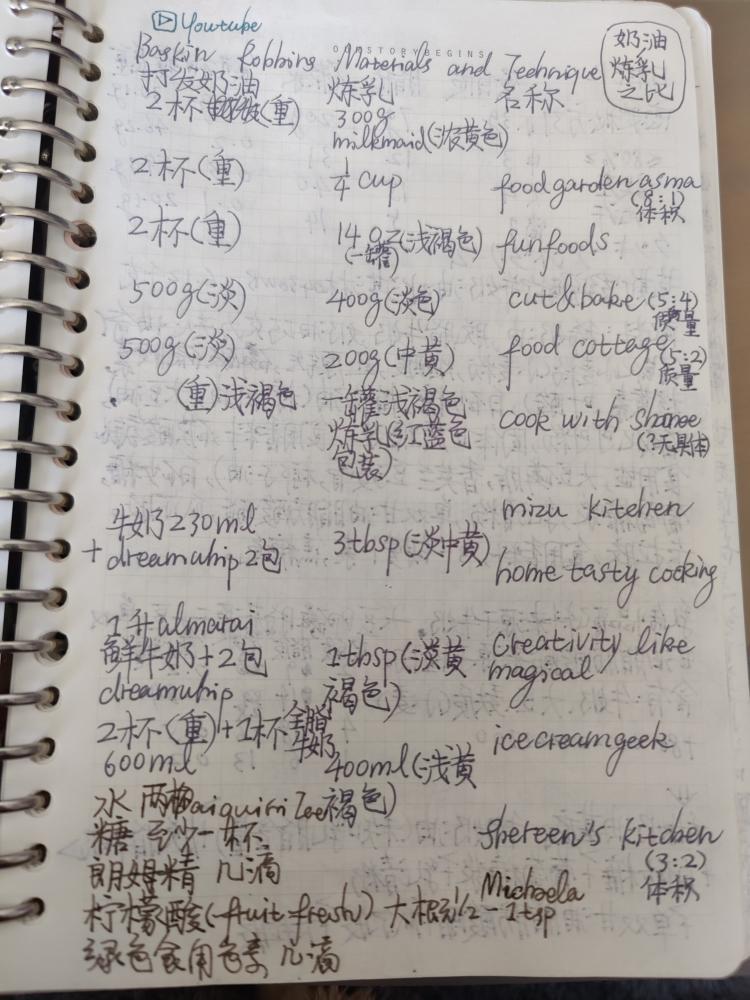 Youtube
OUR STORY BEGINS
Baskin Robbins Materials and Technique
奶油
炼乳
之比
打发奶油 炼乳 名称
2杯(重) 300g
milkmaid(浓黄色)
2杯(重) 1/4 cup food garden asma
(8:1)
体积
2杯(重) 14 OZ(浅褐色) funfoods
(一罐)
500g(淡) 400g(淡色) cut&bake (5:4)
质量
500g(淡) 200g(中黄) food cottage (5:2)
质量
(重)浅褐色 一罐浅褐色 cook with shanee
炼乳(红蓝色 (?无具体)
包装)
mizu kitchen
牛奶230ml
+dreamwhip 2包 3tbsp(淡中黄) home tasty cooking
1升almarai
鲜牛奶+2包 1tbsp(淡黄 creativity like
dreamwhip 褐色) magical
2杯(重)+1杯全脂牛奶 icecreamgeek
600ml 400ml(浅黄
褐色) shereen's kitchen
(3:2)
体积
水 两 daiquiri Ice
糖 至少一杯
朗姆精 几滴 Michaela
柠檬酸(-fruit fresh) 大概1/2-1tsp
绿色食用色素 几滴